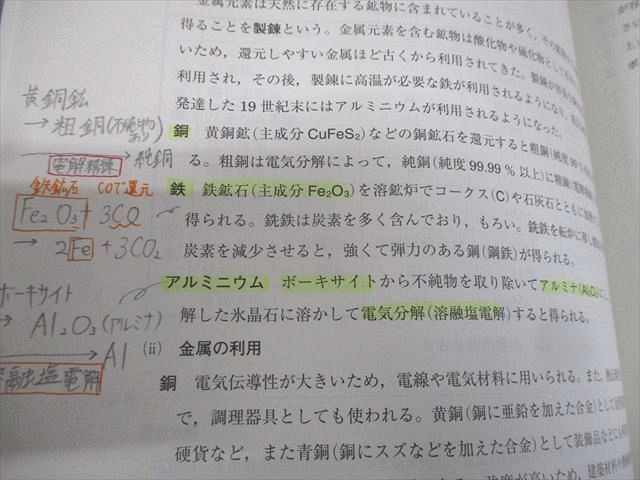 金属元素は天然に存在する鉱物に含まれていることが多く，その
得ることを製錬という。金属元素を含む鉱物は酸化物や硫化物として
いため，還元しやすい金属ほど古くから利用されてきた。製錬が
利用され，その後，製錬に高温が必要な鉄が利用されるようになり，
発達した19世紀末にはアルミニウムが利用されるようになった。
銅 黄銅鉱(主成分 CuFeS₂)などの銅鉱石を還元すると粗銅(純度
る。粗銅は電気分解によって，純銅(純度 99.99 % 以上)に
鉄 鉄鉱石(主成分 Fe₂O₃)を溶鉱炉でコークス(C)や石灰石とともに
得られる。銑鉄は炭素を多く含んでおり，もろい。銑鉄を転炉に移し
炭素を減少させると，強くて弾力のある鋼(鋼鉄)が得られる。
アルミニウム ボーキサイトから不純物を取り除いてアルミナ(Al₂O₃)
解した氷晶石に溶かして電気分解(溶融塩電解)すると得られる。
(ii) 金属の利用
銅 電気伝導性が大きいため，電線や電気材料に用いられる。また，
で，調理器具としても使われる。黄銅(銅に亜鉛を加えた合金)として
硬貨など，また青銅(銅にスズなどを加えた合金)として装飾品などに
強度が高いため，建築材料や
黄銅鉱
→ 粗銅(不純物あり)
→ 純銅
電解精錬
鉄鉱石 COで還元
Fe₂O₃ + 3CO
→ 2Fe + 3CO₂
ボーキサイト
→ Al₂O₃(アルミナ)
→ Al
融塩電解